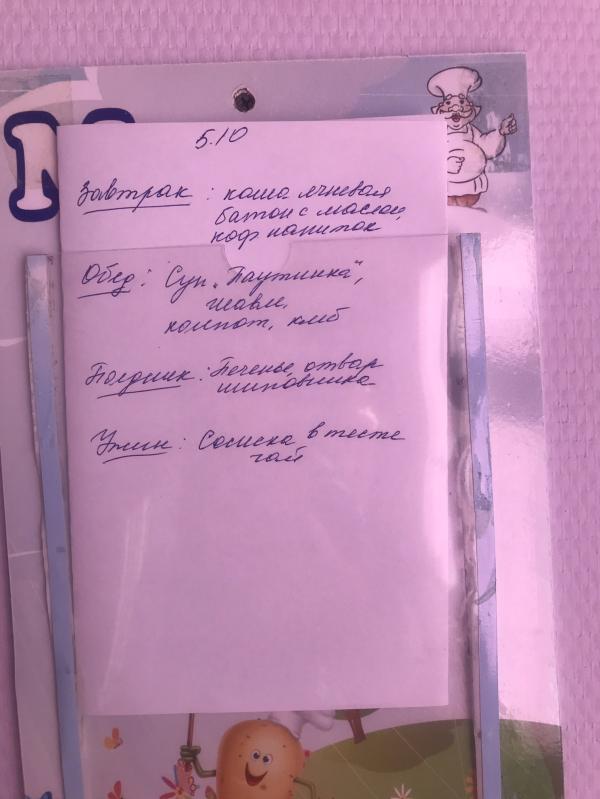 М
5.10
Завтрак : каша ячневая
батон с маслом,
коф напиток
Обед : Суп "Паутинка",
плавле,
компот, хлеб
Полдник : Печенье, отвар
шиповника
Ужин : Сосиска в тесте
чай